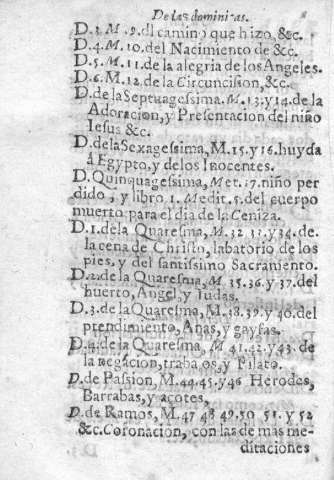 De las dominicas.
D.3.M.9.del camino que hizo, &c.
D.4.M.10.del Nacimiento de &c.
D.5.M.11.de la alegria de los Angeles.
D.6.M.12.de la Circuncision, &c.
D.de la Septuagessima.M.13.y 14.de la
Adoracion, y Presentacion del niño
Iesus &c.
D.de la Sexagessima, M.15.y 16.huyda
a Egypto, y de los Inocentes.
D.Quinquagessima, Met.17.niño per
dido, y libro 1. Medit.5.del cuerpo
muerto para el dia de la Ceniza.
D.1.de la Quaresma, M.32 33.y 34.de.
la cena de Christo, labatorio de los
pies, y del santissimo Sacramento.
D.2.de la Quaresma, M 35.36.y 37.del
huerto, Angel, y Iudas.
D.3.de la Quaresma, M.38.39.y 40.del
prendimiento, Anas, y gayfas.
D.4.de la Quaresma, M 41.42.y 43. de
la negacion, trabajos, y Pilato.
D.de Passion, M.44.45.y 46 Herodes,
Barrabas, y açotes,
D.de Ramos, M.47 48 49.50 51. y 52
&c.Coronacion, con las de mas me-
ditaciones